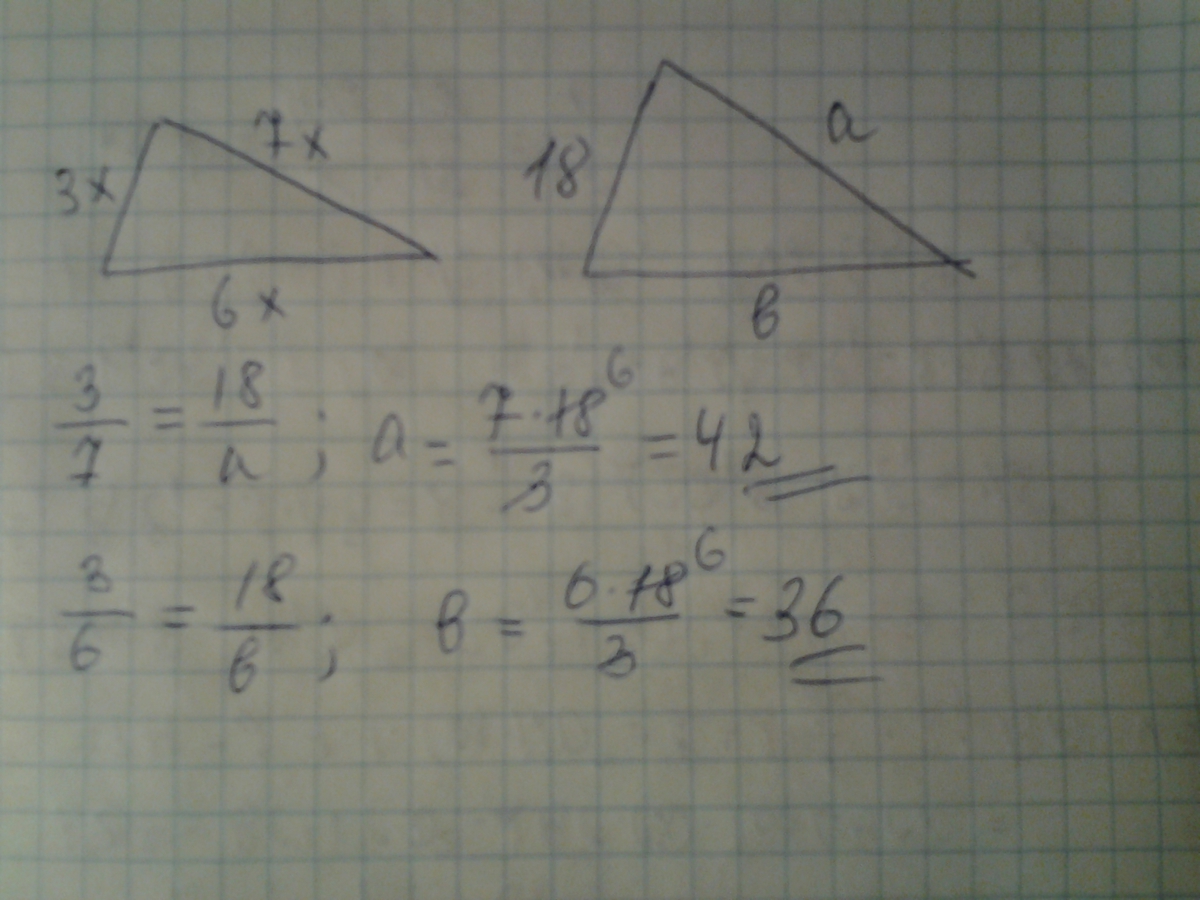 3x 7x 6x
18 a в
3/7 = 18/a ; a = 7·18⁶/3 = 42
3/6 = 18/в ; в = 6·18⁶/3 = 36